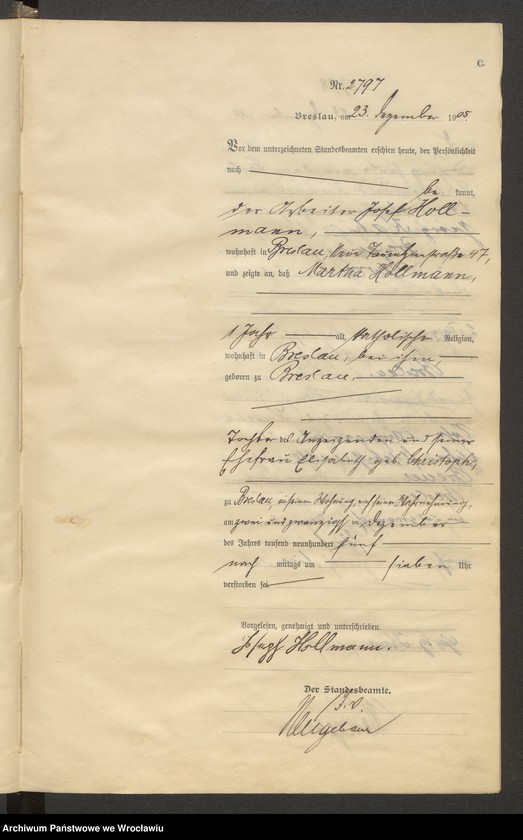 C.
Nr. 2797
Breslau, am 23. Dezember 1905
Vor dem unterzeichneten Standesbeamten erschien heute, der Persönlichkeit
nach
be kannt,
der Arbeiter Josef Holl-
mann,
wohnhaft in Breslau, Neue Tauentzienstraße 47,
und zeigte an, daß Martha Hollmann,
1 Jahr alt, katholischer Religion,
wohnhaft in Breslau, bei ihm,
geboren zu Breslau.
Tochter des Anzeigenden und seiner
Ehefrau Elisabeth geb. Christoph,
zu Breslau, in seiner Wohnung, nach seiner Wahrnehmung,
am zwei und zwanzigsten Dezember
des Jahres tausend neunhundert fünf
nach mittags um sieben Uhr
verstorben sei.
Vorgelesen, genehmigt und unterschrieben.
Joseph Hollmann.
Der Standesbeamte.
J. V.
Neugebauer
Archiwum Państwowe we Wrocławiu